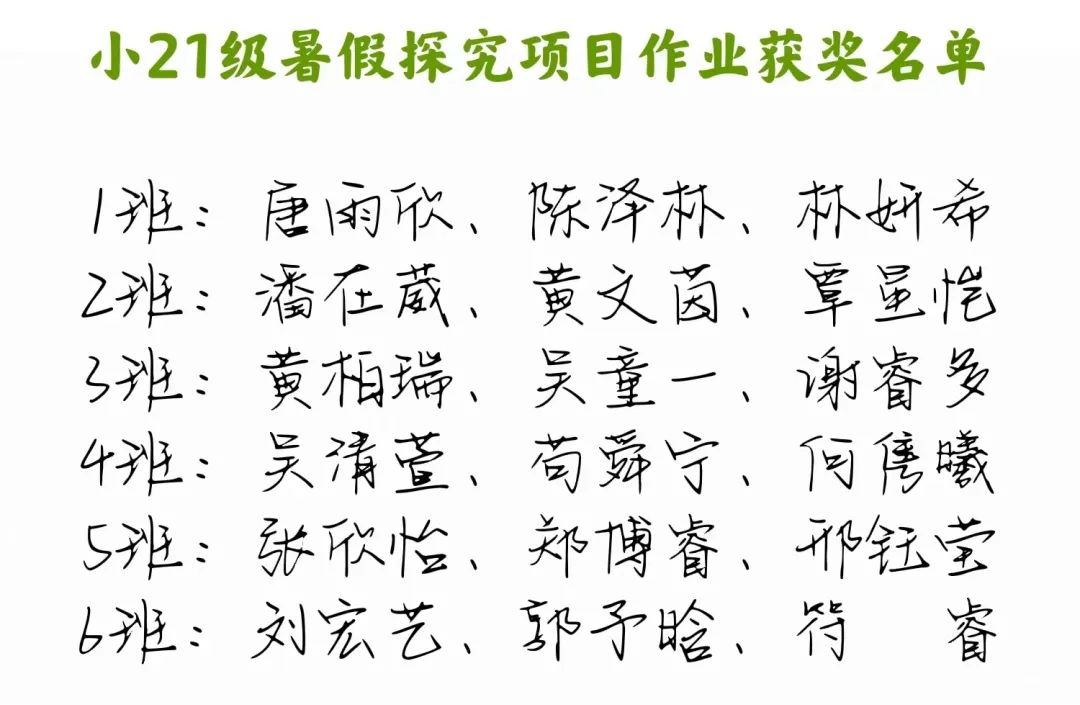 小21级暑假探究项目作业获奖名单
1班：唐雨欣、陈泽林、林妍希
2班：潘在葳、黄文茵、覃星恺
3班：黄柏瑞、吴童一、谢睿多
4班：吴清萱、苟舜宁、何隽曦
5班：张欣怡、郑博睿、邢钰莹
6班：刘宏艺、郭予晗、符 睿